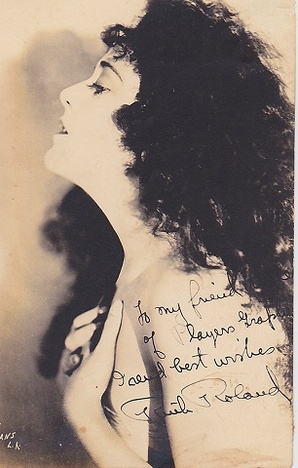 To my friend
of Players Grap
I send best wishes
Ruth Roland
ANS
L.A.